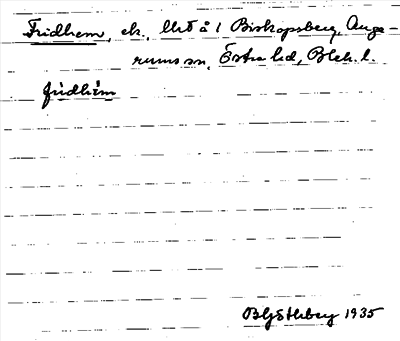 Fridhem, ek., lht å 1 Biskopsberg, Auge-
rums sn, Östra hd, Blek. l.
fridhèm
B Götlberg 1935